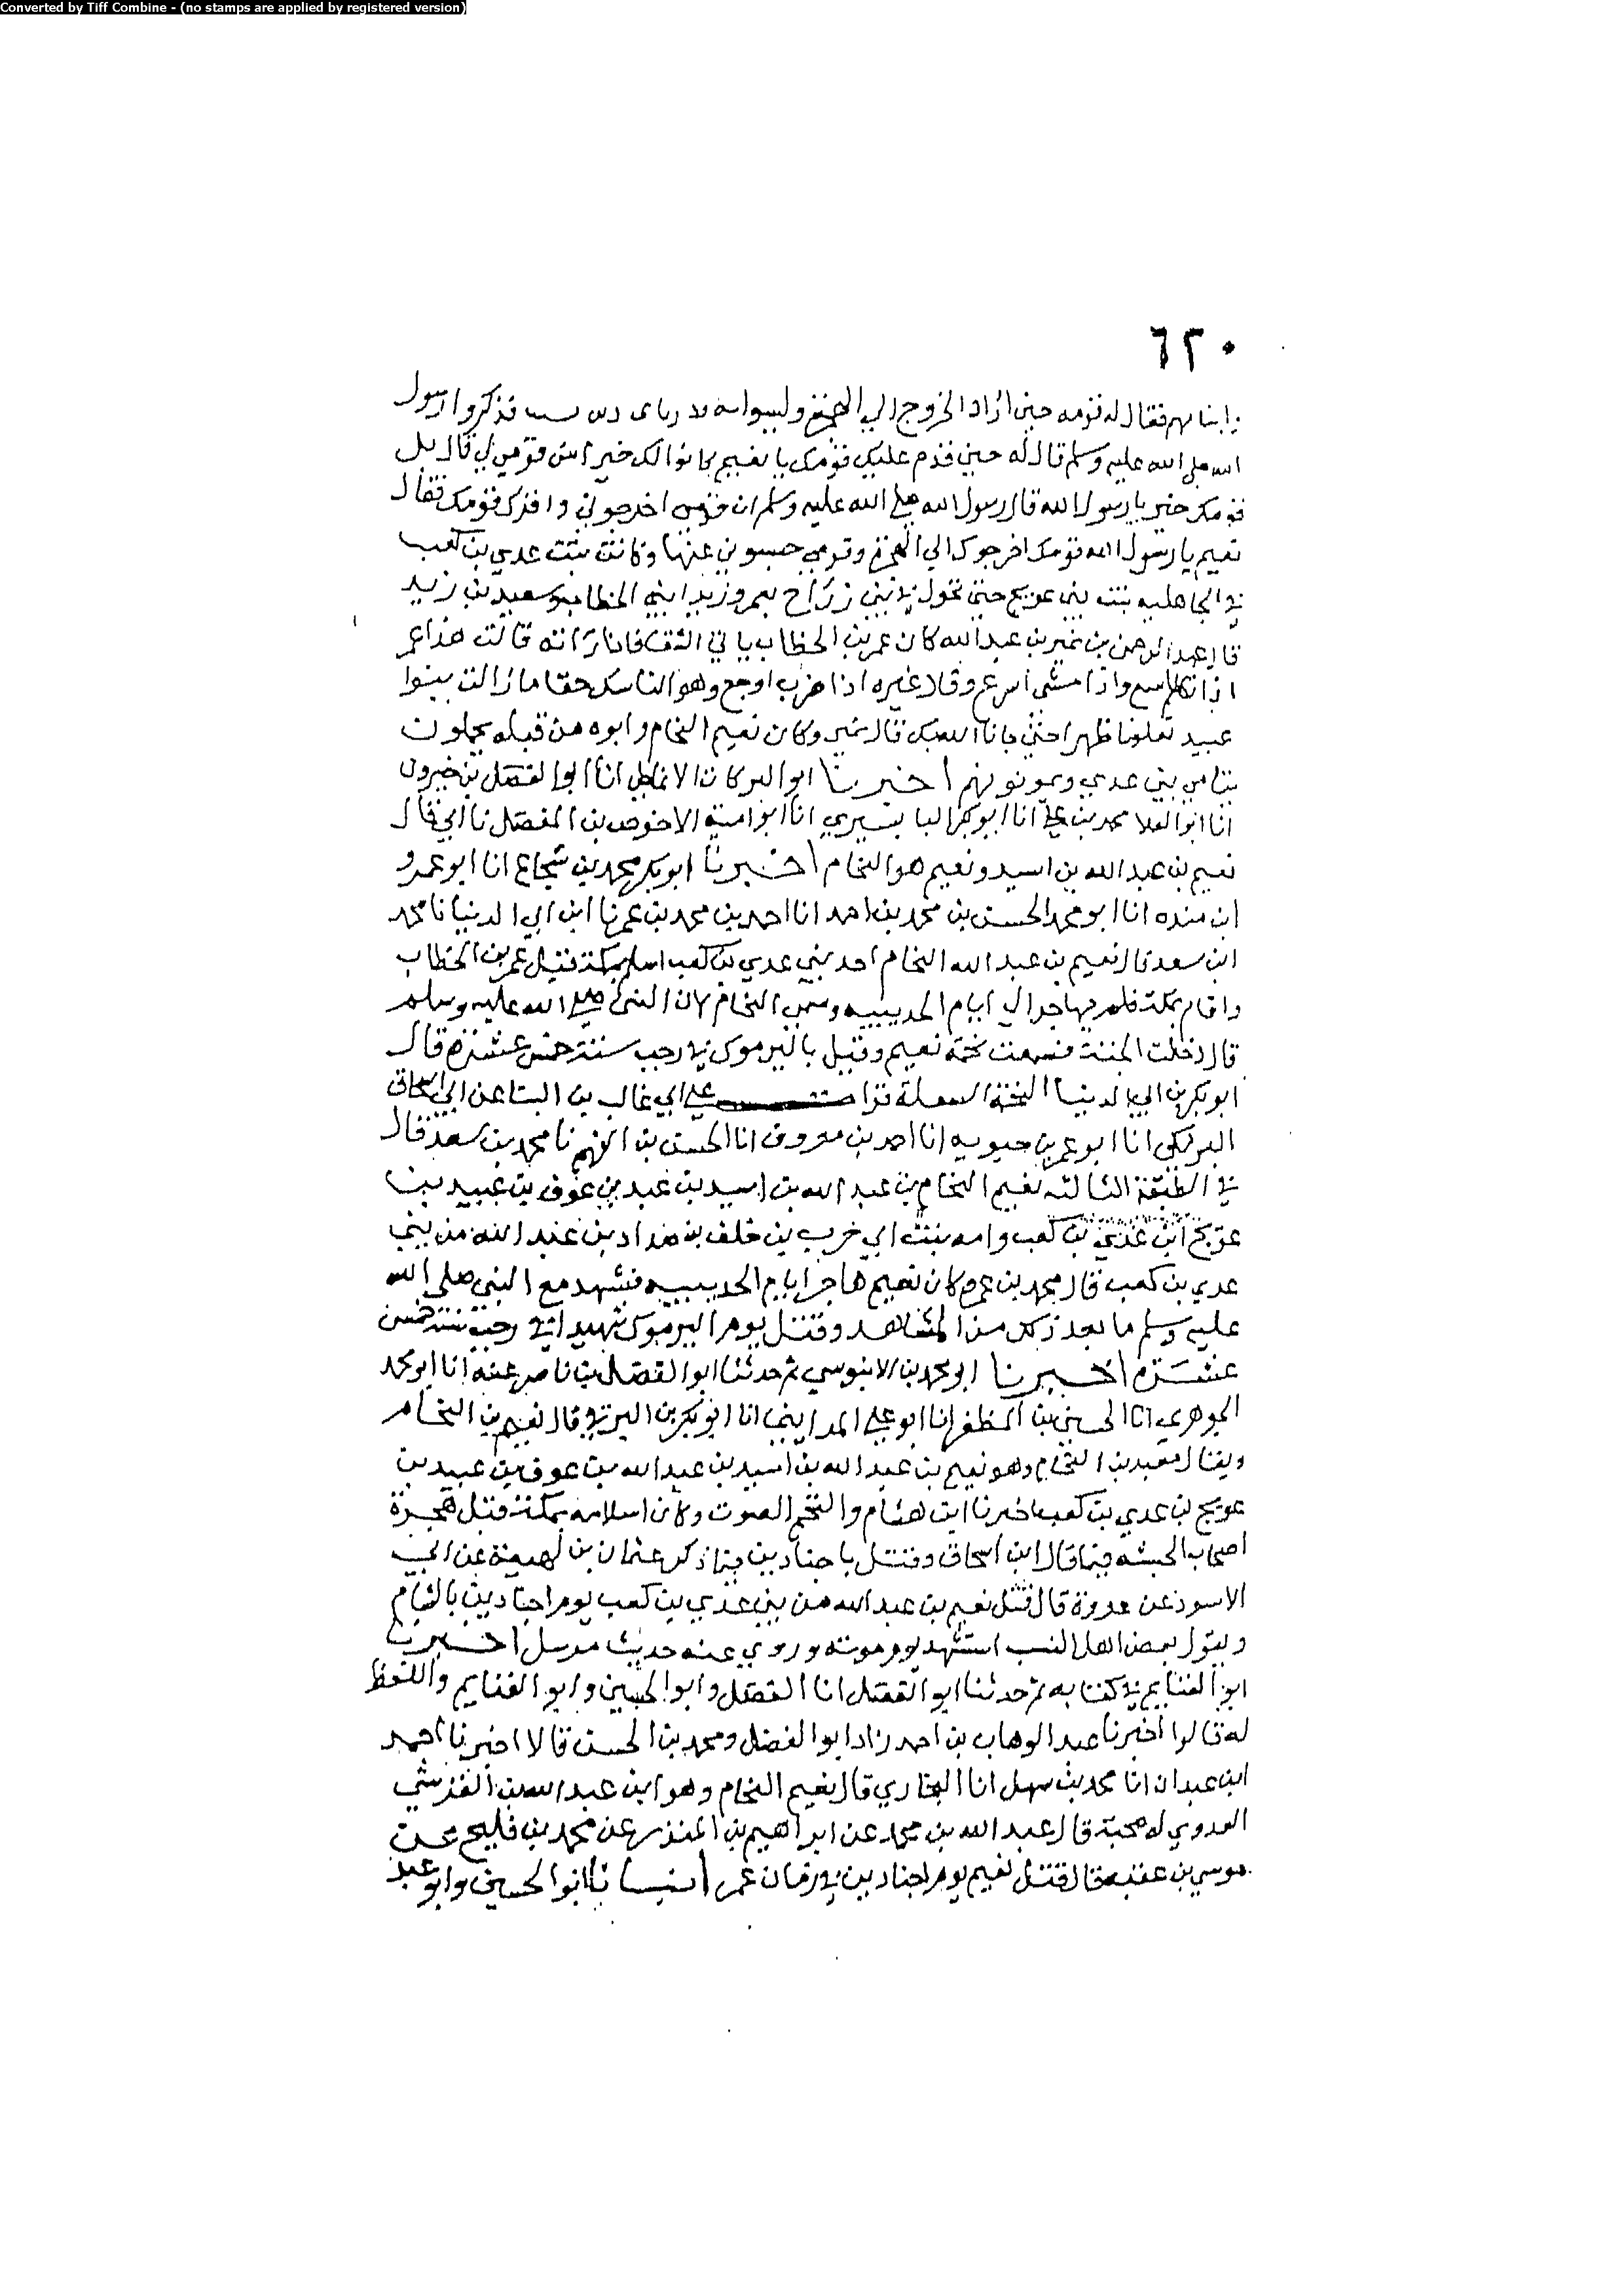 Converted by Tiff Combine - (no stamps are applied by registered version)
٦٢٠
فقال له قومه حين اراد الخروج الي الهجرة فذكروا ان رسول
الله صلى الله عليه وسلم قال له حين قدم عليه قومك يا نعيم كانوا لك خيرا من قومي لي قال بل
قومك خير يا رسول الله قال رسول الله صلى الله عليه وسلم ان قومي اخرجوني واقرك قومك فقال
نعيم يا رسول الله قومك اخرجوك الي الهجرة وقومي حبسوني عنها وكانت بنت عدي بن كعب
في الجاهليه بنت بني عويج حتى تحول في بني رزاح بعمرو وزيد ابني الخطاب وسعيد بن زيد
قال عبد الرحمن بن نمير بن عبد الله كان عمر بن الخطاب ياتي الشفا فاذا راته قالت هذا عمر
اذا تكلم اسمع واذا مشى اسرع وقال غيره اذا ضرب اوجع وهو الناسك حقا ما زالت بنوا
عبيد تعلونا ظهرا حتى جانا الله بك قال نمير وكان نعيم النحام وابوه من قبله يحملون
يتامى بني عدي ويمونونهم اخبرنا ابوا البركات الانماطي انا ابوا الفضل بن خيرون
انا ابوا العلا محمد بن علي انا ابو بكر البابسيري انا ابوا امية الاخوص بن المفضل نا ابي قال
نعيم بن عبد الله بن اسيد ونعيم هو النحام اخبرنا ابو بكر محمد بن شجاع انا ابو عمرو
ابن منده انا ابو محمد الحسن بن محمد بن احمد انا احمد بن محمد بن عمر نا ابن ابي الدنيا نا محمد
ابن سعد قال نعيم بن عبد الله النحام احد بني عدي بن كعب اسلم بمكة قبل عمر بن الخطاب
واقام بمكة فلم يهاجر الي ايام الحديبيه وسمي النحام لان النبي صلى الله عليه وسلم
قال دخلت الجنة فسمعت نحمة نعيم وقتل باليرموك في رجب سنة خمس عشرة قال
ابو بكر بن ابي الدنيا النحمة السعلة قرات علي ابي غالب بن البنا عن ابي اسحاق
البرمكي انا ابو عمر بن حيويه انا احمد بن معروف انا الحسن بن الفهم نا محمد بن سعد قال
في الطبقة الثالثه نعيم النحام بن عبد الله بن اسيد بن عبد بن عوف بن عبيد بن
عويج ابن عدي بن كعب وامه بنت ابي حرب بن خلف بن صداد بن عبد الله من بني
عدي بن كعب قال محمد بن عمر وكان نعيم هاجر ايام الحديبيه فشهد مع النبي صلى الله
عليه وسلم ما بعد ذلك من المشاهد وقتل يوم اليرموك شهيدا في رجب سنة خمس
عشرة اخبرنا ابو محمد بن الابنوسي ثم حدثنا ابوا الفضل بن ناصر عنه انا ابو محمد
الجوهري انا الحسين بن المظفر انا ابو علي المدايني انا ابو بكر بن البرقي قال نعيم بن النحام
ويقال معبد بن النحام وهو نعيم بن عبد الله بن اسيد بن عبد الله بن عوف بن عبيد بن
عويج بن عدي بن كعب اخبرنا ابن هشام والنحم الصوت وكان اسلامه بمكة قبل هجرة
اصحاب الحبشه فيما قال ابن اسحاق وقتل باجنادين فيما ذكر عثمان بن لهيعة عن ابي
الاسود عن عروة قال قتل نعيم بن عبد الله من بني عدي بن كعب يوم اجنادين بالشام
ويقول بعض اهل النسب استشهد يوم موته وروي عنه حديث مرسل اخبرنا
ابوا الغنايم في كتابه ثم حدثنا ابوا الفضل انا الفضل وابوا الحسين وابوا الغنايم واللفظ
له قالوا اخبرنا عبد الوهاب بن احمد زاد ابوا الفضل ومحمد بن الحسن قالا اخبرنا احمد
ابن عبدان انا محمد بن سهل انا البخاري قال نعيم النحام وهو ابن عبد الله بن القرشي
العدوي له صحبة قال عبد الله بن محمد عن ابراهيم بن المنذر عن محمد بن فليح عن
موسي بن عقبه قال قتل نعيم يوم اجنادين في زمان عمر انبانا ابوا الحسين وابو عبد